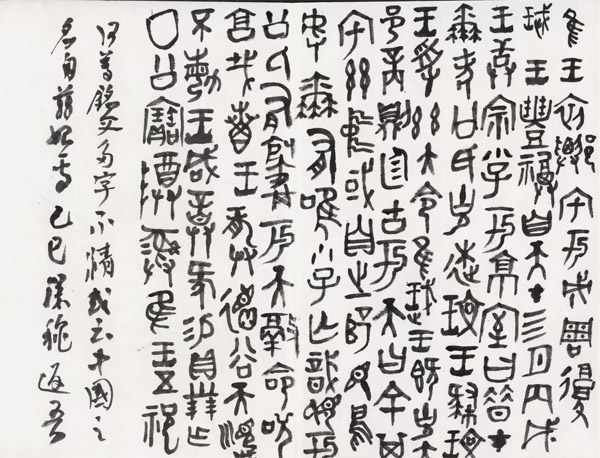 隹王初遷宅于成周復
珷王豐福自天才四月丙戌
王誥宗小子于京室曰昔才
爾考公氏克逨玟王肆玟
王受茲大令隹珷王既克大
邑商則廷告于天曰余其
宅茲中或自之辥民烏
虖爾有唯小子亡識視于
公氏有爵于天徹命苟
享哉叀王龏德谷天順我
不敏王咸誥
囗公寶尊彝隹王五祀
何尊銘文多字不清或云中國之
名自茲始焉 乙巳深秋 返吾